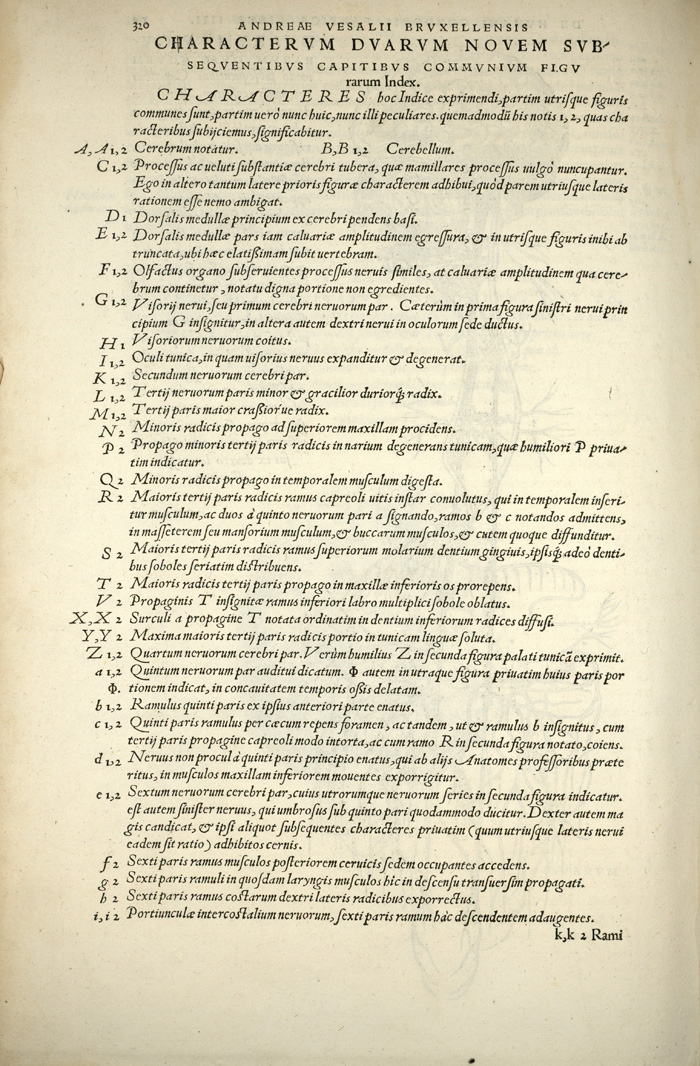 320 ANDREAE VESALII BRVXELLENSIS
CHARACTERVM DVARVM NOVEM SVB-
SEQVENTIBVS CAPITIBVS COMMVNIVM FIGV
rarum Index.
CHARACTERES hoc Indice exprimendi, partim utrisque figuris
communes sunt, partim uerò nunc huic, nunc illi peculiares. quemadmodū his notis 1, 2, quas cha
racteribus subijciemus, significabitur.
A, A 1,2 Cerebrum notatur. B, B 1,2 Cerebellum.
C 1,2 Processus ac ueluti substantiæ cerebri tubera, quæ mamillares processus uulgò nuncupantur.
Ego in altero tantum latere prioris figuræ characterem adhibui, quòd parem utriusque lateris
rationem esse nemo ambigat.
D 1 Dorsalis medullæ principium ex cerebri pendens basi.
E 1,2 Dorsalis medullæ pars iam caluariæ amplitudinem egressura, & in utrisque figuris inibi ab
truncata, ubi hæc elatissimam subit uertebram.
F 1,2 Olfactus organo subseruientes processus neruis similes, at caluariæ amplitudinem qua cere-
brum continetur, notatu digna portione non egredientes.
G 1,2 Visorij nerui, seu primum cerebri neruorum par. Cæterùm in prima figura sinistri nerui prin
cipium G insignitur, in altera autem dextri nerui in oculorum sede ductus.
H 1 Visoriorum neruorum coitus.
I 1,2 Oculi tunica, in quam uisorius neruus expanditur & degenerat.
K 1,2 Secundum neruorum cerebri par.
L 1,2 Tertij neruorum paris minor & gracilior duriorq́; radix.
M 1,2 Tertij paris maior crassior'ue radix.
N 2 Minoris radicis propago ad superiorem maxillam procidens.
P 2 Propago minoris tertij paris radicis in narium degenerans tunicam, quæ humiliori P priua-
tim indicatur.
Q 2 Minoris radicis propago in temporalem musculum digesta.
R 2 Maioris tertij paris radicis ramus capreoli uitis instar conuolutus, qui in temporalem inseri-
tur musculum, ac duos à quinto neruorum pari a signando, ramos b & c notandos admittens,
in masseterem seu mansorium musculum, & buccarum musculos, & cutem quoque diffunditur.
S 2 Maioris tertij paris radicis ramus superiorum molarium dentium gingiuis, ipsisq́; adeò denti-
bus soboles seriatim distribuens.
T 2 Maioris radicis tertij paris propago in maxillæ inferioris os prorepens.
V 2 Propaginis T insignitæ ramus inferiori labro multiplici sobole oblatus.
X, X 2 Surculi a propagine T notata ordinatim in dentium inferiorum radices diffusi.
Y, Y 2 Maxima maioris tertij paris radicis portio in tunicam linguæ soluta.
Z 1,2 Quartum neruorum cerebri par. Verùm humilius Z in secunda figura palati tunicā exprimit.
a 1,2 Quintum neruorum par auditui dicatum. Φ autem in utraque figura priuatim huius paris por
Φ. tionem indicat, in concauitatem temporis ossis delatam.
b 1,2 Ramulus quinti paris ex ipsius anteriori parte enatus.
c 1,2 Quinti paris ramulus per cæcum repens foramen, ac tandem, ut & ramulus b insignitus, cum
tertij paris propagine capreoli modo intorta, ac cum ramo R in secunda figura notato, coiens.
d 1,2 Neruus non procul à quinti paris principio enatus, qui ab alijs Anatomes professoribus præte
ritus, in musculos maxillam inferiorem mouentes exporrigitur.
e 1,2 Sextum neruorum cerebri par, cuius utrorumque neruorum series in secunda figura indicatur.
est autem sinister neruus, qui umbrosus sub quinto pari quodammodo ducitur. Dexter autem ma
gis candicat, & ipsi aliquot subsequentes characteres priuatim (quum utriusque lateris nerui
eadem sit ratio) adhibitos cernis.
f 2 Sexti paris ramus musculos posteriorem ceruicis sedem occupantes accedens.
g 2 Sexti paris ramuli in quosdam laryngis musculos hic in descensu transuersim propagati.
h 2 Sexti paris ramus costarum dextri lateris radicibus exporrectus.
i, i 2 Portiunculæ intercostalium neruorum, sexti paris ramum hâc descendentem adaugentes.
k, k 2 Rami